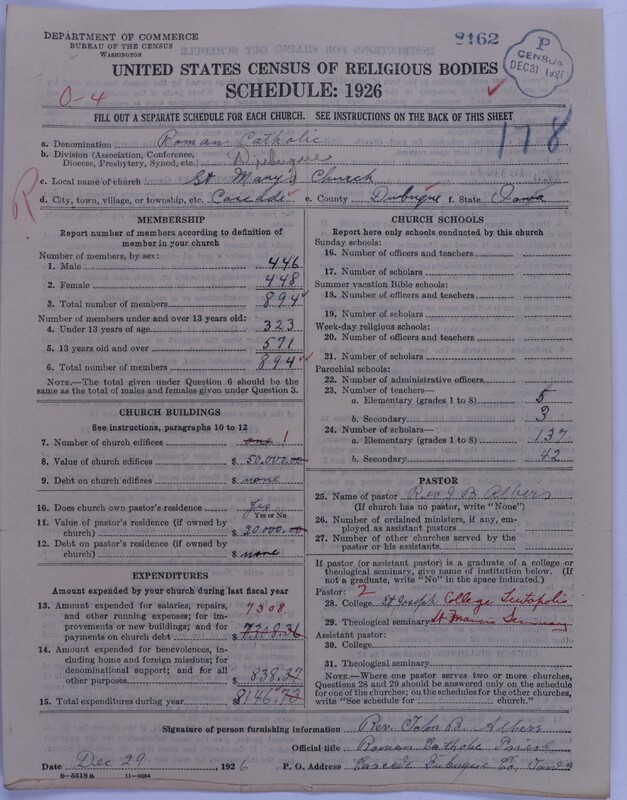 DEPARTMENT OF COMMERCE
BUREAU OF THE CENSUS
WASHINGTON
8162
P
CENSUS
DEC 31 1926
UNITED STATES CENSUS OF RELIGIOUS BODIES
SCHEDULE: 1926
0-4
FILL OUT A SEPARATE SCHEDULE FOR EACH CHURCH. SEE INSTRUCTIONS ON THE BACK OF THIS SHEET
178
a. Denomination Roman Catholic
b. Division (Association, Conference, Diocese, Presbytery, Synod, etc.) Dubuque
c. Local name of church St Mary's Church
R
d. City, town, village, or township, etc. Cascade e. County Dubuque f. State Iowa
MEMBERSHIP
Report number of members according to definition of
member in your church
Number of members, by sex:
1. Male 446
2. Female 448
3. Total number of members 894
Number of members under and over 13 years old:
4. Under 13 years of age 323
5. 13 years old and over 571
6. Total number of members 894
NOTE.—The total given under Question 6 should be
same as the total of males and females given under Question 3.
CHURCH BUILDINGS
See instructions, paragraphs 10 to 12
7. Number of church edifices one 1
8. Value of church edifices $ 50.000.00
9. Debt on church edifices $ none
10. Does church own pastor's residence Yes
Yes or No
11. Value of pastor's residence (if owned by
church) $ 30000.00
12. Debt on pastor's residence (if owned by
church) $ none
EXPENDITURES
Amount expended by your church during last fiscal year
13. Amount expended for salaries, repairs, 7308.
and other running expenses; for im-
provements or new buildings; and for
payments on church debt $ 7308.36
14. Amount expended for benevolences,
including home and foreign missions; for
denominational support; and for all
other purposes $ 838.37
15. Total expenditures during year $ 8146.73
CHURCH SCHOOLS
Report here only schools conducted by this church
Sunday schools:
16. Number of officers and teachers
17. Number of scholars
Summer vacation Bible schools:
18. Number of officers and teachers
19. Number of scholars
Week-day religious schools:
20. Number of officers and teachers
21. Number of scholars
Parochial schools:
22. Number of administrative officers
23. Number of teachers—
a. Elementary (grades 1 to 8) 5
b. Secondary 3
24. Number of scholars—
a. Elementary (grades 1 to 8) 137
b. Secondary 42
PASTOR
25. Name of pastor Rev J B Albers
(If church has no pastor, write "None")
26. Number of ordained ministers, if any, em-
ployed as assistant pastors
27. Number of other churches served by the
pastor or his assistants
If pastor (or assistant pastor) is a graduate of a college or
theological seminary, give name of institution below. (If
not a graduate, write "No" in the space indicated.)
Pastor: 2
28. College St Joseph College Teutopolis
29. Theological seminary St Francis Seminary
Assistant pastor:
30. College
31. Theological seminary
NOTE.—Where one pastor serves two or more churches,
Questions 28 and 29 should be answered only on the schedule
for one of the churches; on the schedules for the other churches,
write "See schedule for church."
Signature of person furnishing information Rev. John B. Albers
Official title Roman Catholic Priest
Date Dec 29, 1926 P. O. Address Cascade Dubuque Co, Iowa
8-5318 R 11-9034